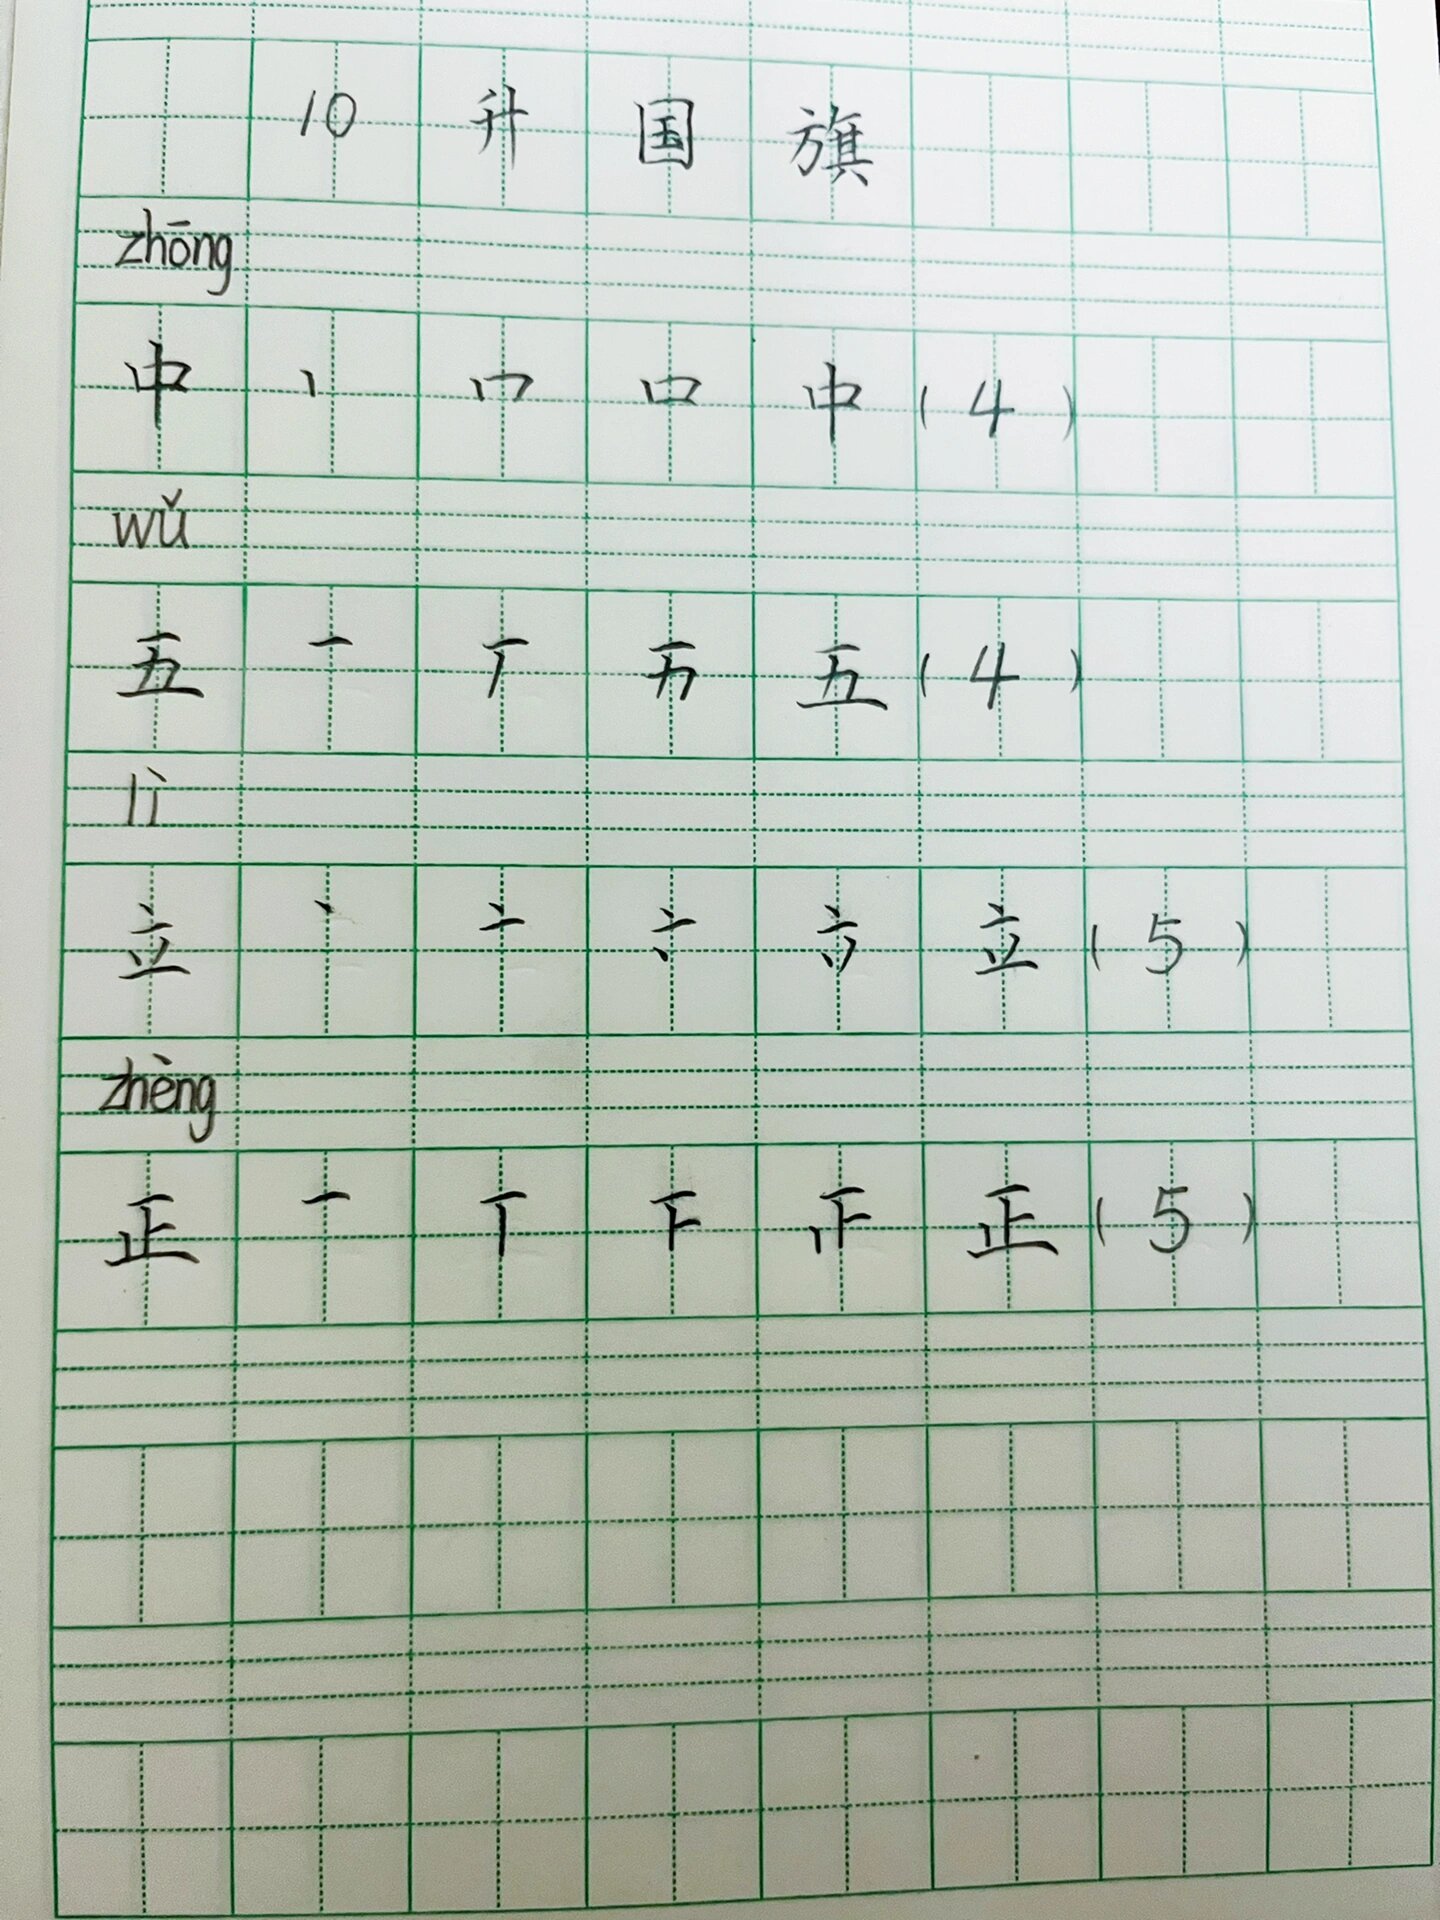 10 升 国 旗
zhōng
中 丨 𠃍 口 中 (4)
wǔ
五 一 丅 𠀎 五 (4)
lì
立 丶 亠 立 (5)
zhèng
正 一 丅 下 正 (5)